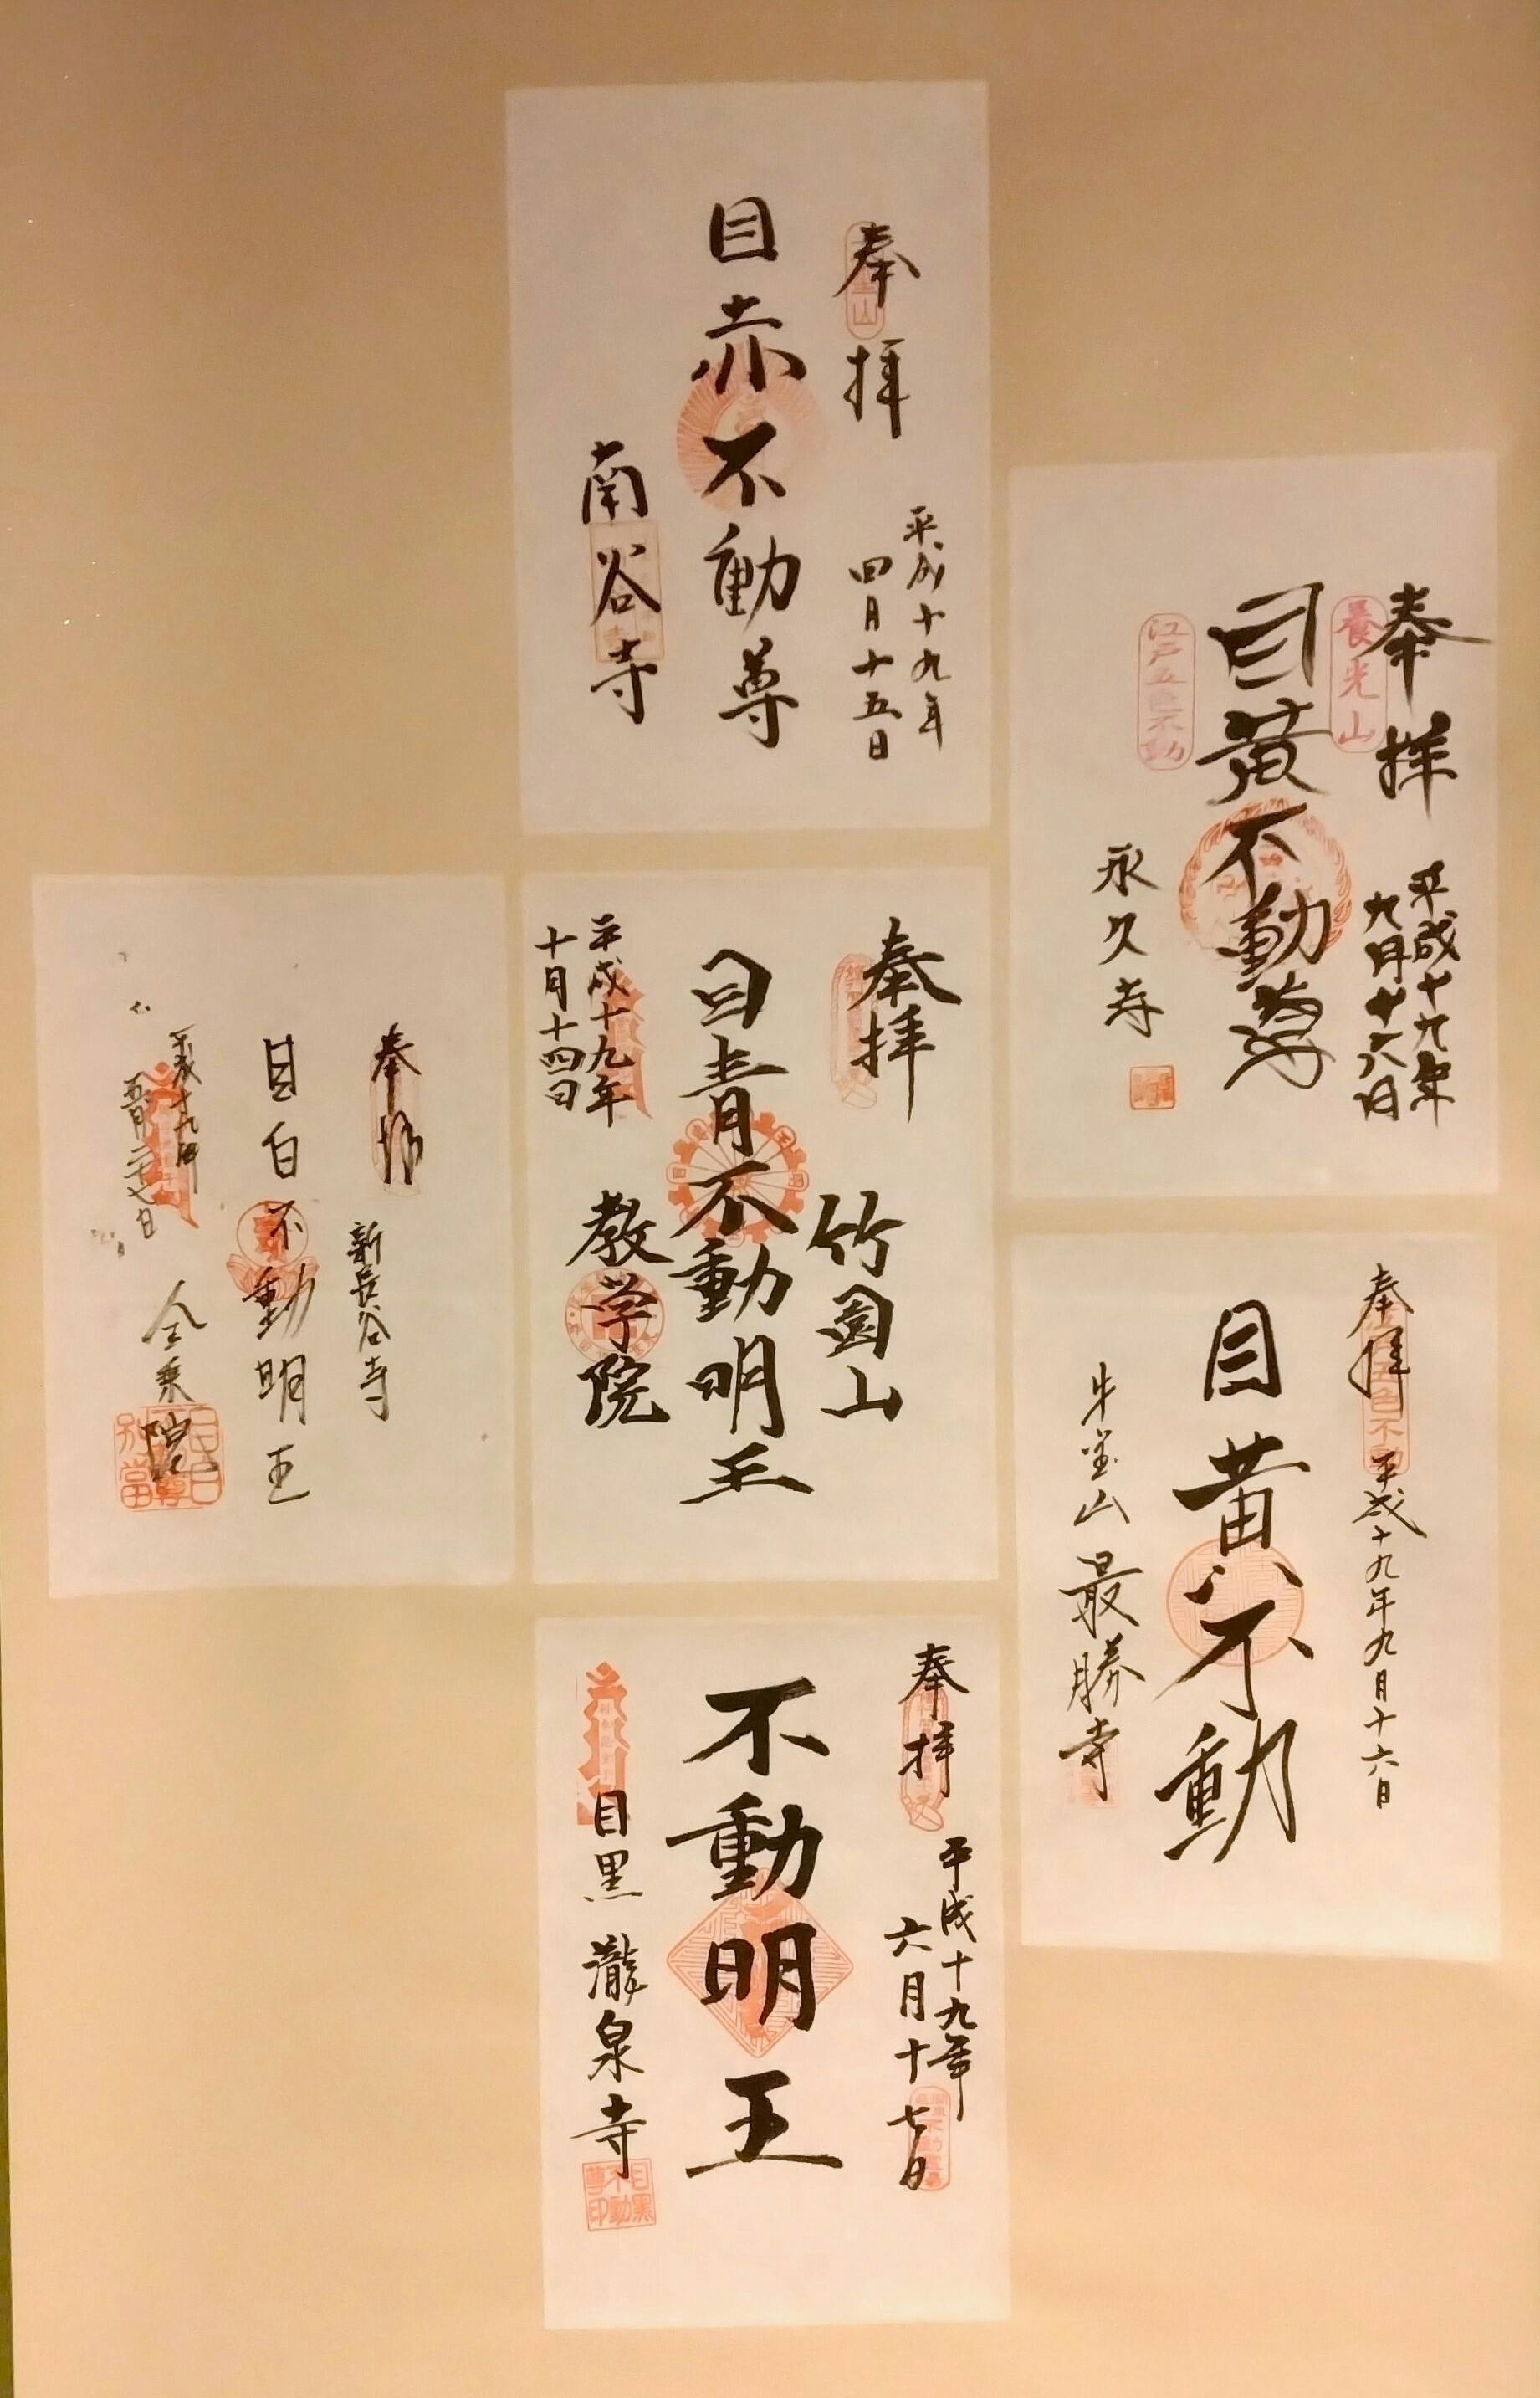 奉拝
平成十九年
四月十五日
目赤不動尊
南谷寺
奉拝
養光山
平成十九年
九月十六日
目黄不動尊
江戸五色不動
永久寺
奉拝
竹園山
目青不動明王
平成十九年
十月十四日
教学院
奉拝
新長谷寺
目白不動明王
平成十九年
五月二十七日
金乗院
奉拝
平成十九年九月十六日
目黄不動
牛宝山 最勝寺
奉拝
平成十九年
六月十七日
不動明王
目黒 瀧泉寺
目黒
不動
尊印